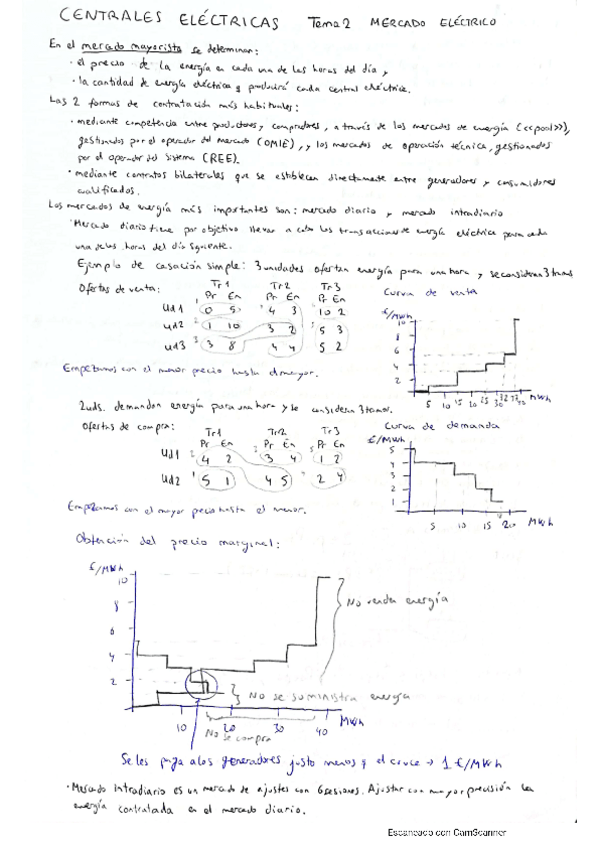 CENTRALES ELÉCTRICAS Tema 2 MERCADO ELÉCTRICO
En el mercado mayorista se determinan:
· el precio de la energía en cada una de las horas del día y
· la cantidad de energía eléctrica q producirá cada central eléctrica.
Las 2 formas de contratación más habituales:
· mediante competencia entre productores y compradores, a través de los mercados de energía (<<pool>>),
gestionados por el operador del mercado (OMIE), y los mercados de operación técnica, gestionados
por el operador del sistema (REE).
· mediante contratos bilaterales que se establecen directamente entre generadores y consumidores
cualificados.
Los mercados de energía más importantes son: mercado diario y mercado intradiario
· Mercado diario tiene por objetivo llevar a cabo las transacciones de energía eléctrica para cada
una de las horas del día siguiente.
Ejemplo de casación simple: 3 unidades ofertan energía para una hora y se considera 3 tramos
Ofertas de venta: Tr1 Tr2 Tr3 Curva de venta
Pr En Pr En Pr En
Ud1 0 5 4 3 10 2
Ud2 1 10 3 2 5 3
Ud3 3 8 4 4 5 2
€/MWh
10
8
6
4
2
5 10 15 20 25 30 32 MWh
Empezamos con el menor precio hasta el mayor.
2 uds. demandan energía para una hora y se considera 3 tramos.
Ofertas de compra: Tr1 Tr2 Tr3 Curva de demanda
Pr En Pr En Pr En
Ud1 4 2 3 4 1 2
Ud2 5 1 4 5 2 4
€/MWh
5
4
3
2
1
5 10 15 20 MWh
Empezamos con el mayor precio hasta el menor.
Obtención del precio marginal:
€/MWh
10
8
6
4
2
No vende energía
No se suministra energía
10 20 30 40 MWh
No se compra
Se les paga a los generadores justo menos q el cruce → 1 €/MWh
· Mercado Intradiario es un mercado de ajustes con 6 sesiones. Ajustar con mayor precisión la
energía contratada en el mercado diario.
Escaneado con CamScanner